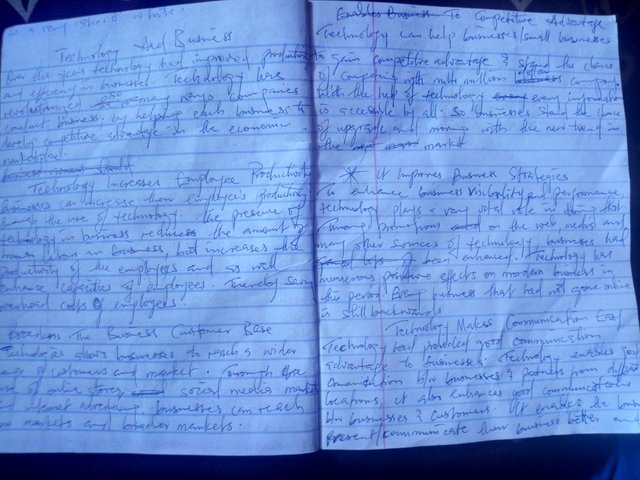 a very short while.
Technology And Business
Over the years technology had improved productivity
and efficiency in businesses. Technology has
revolutionized many ways companies
conduct business, by helping each business to
develop competitive advantage in the economic
marketplace.
Business owners should
Technology Increases Employee Productivity
Businesses can increase their employee's productivity
through the use of technology. The presence of
technology in business reduces the amount of
human labour in business, but increases the
productivity of the employees and as well
enhance capacities of employees. Thereby saving
overhead costs of employees.
Broadens The Business Customer Base
Technologies allows businesses to reach a wider
of customers and market. Through the
of online stores social media
and internet advertising, businesses can reach
markets and broader markets.
Enables Business To Competitive Advantage
Technology can help businesses/small businesses
to gain competitive advantage & stand the chance
of competing with multi million company
With the help of technology every information
is accessible by all. So businesses stand the chance
of upgrade and moving with the new trend in
the market
It Improves Business Strategies
To enhance business visibility and performance
technology plays a very vital role in that
Among promotions on the web, media and
many other sources of technology, businesses had
been enhanced. Technology has
numerous positive effects on modern business in
this period. Every business that had not gone online
is still backwards
Technology Makes Communication Easy
Technology had provided good communication
advantage to businesses. Technology enables good
communication b/w businesses & partners from different
locations, it also enhances good communication
b/w businesses & customers. It enables the business
present/communicate their business better and